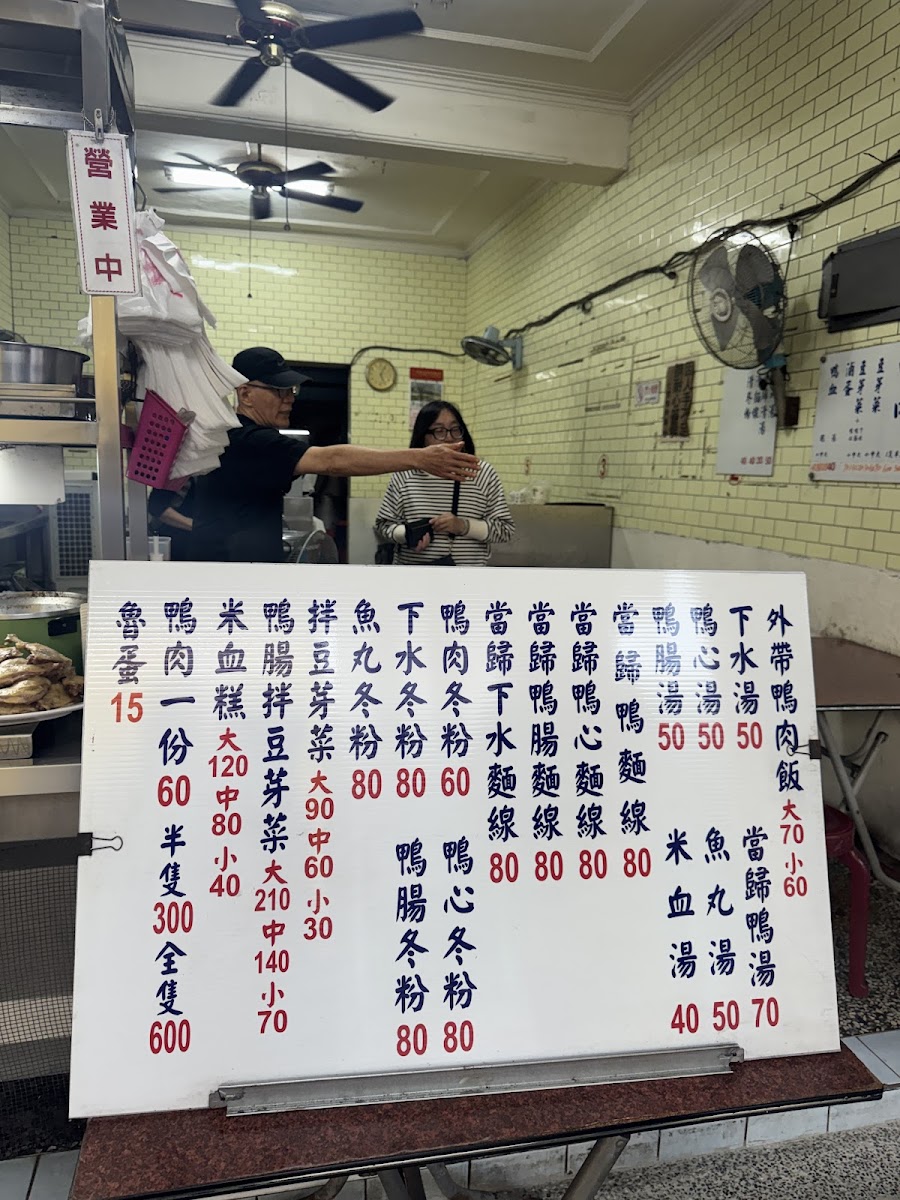 營業中
外帶鴨肉飯 大70 小60
下水湯 50
當歸鴨湯 70
鴨心湯 50
魚丸湯 50
鴨腸湯 50
米血湯 40
當歸鴨麵線 80
當歸鴨心麵線 80
當歸鴨腸麵線 80
當歸下水麵線 80
鴨肉冬粉 60
鴨心冬粉 80
下水冬粉 80
鴨腸冬粉 80
魚丸冬粉 80
拌豆芽菜 大90 中60 小30
鴨腸拌豆芽菜 大210 中140 小70
米血糕 大120 中80 小40
鴨肉一份60 半隻300 全隻600
魯蛋 15
豆芽菜
滷蛋
鴨血